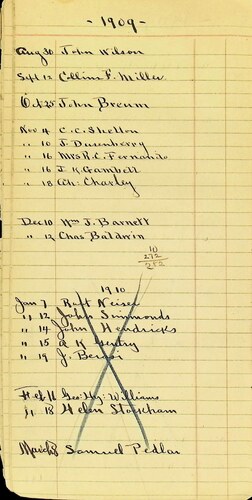 - 1909 -
Aug 30 John Wilson
Sept 12 Collins F. Miller
Oct 25 John Breum
Nov 4 C. C. Shelton
" 10 J. Dusenberry
" 16 Mrs R. C. Fernando
" 16 J. K. Gambell
" 18 Ah: Charley
Dec 10 Wm J. Barnett
" 12 Chas Baldwin
10
272
282
1910
Jan 7 Neiser
" 12 John Simmonds
" 14 John Hendricks
" 15 K Gentry
" 19 J.
Feb 11 Geo: Hy: Williams
" 18 Helen Stockham
March 8 Samuel Pedlar